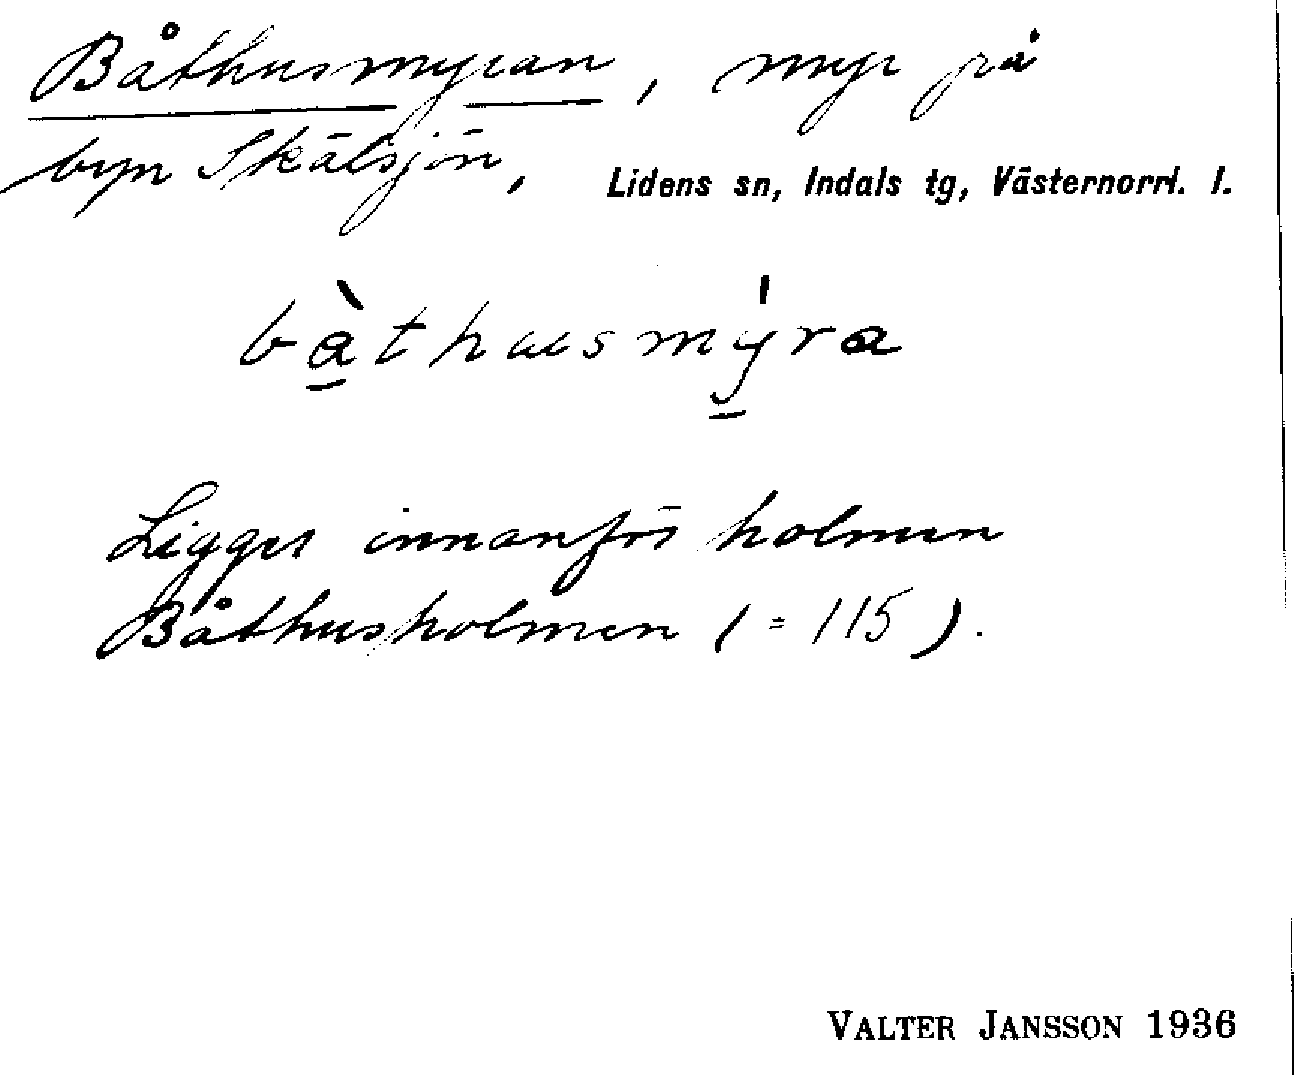 Båthusmyran, myr på
byn Skälsjön, Lidens sn, Indals tg, Västernorrl. l.
bàthusmýra
Ligger innanför holmen
Båthusholmen (= 115).
VALTER JANSSON 1936